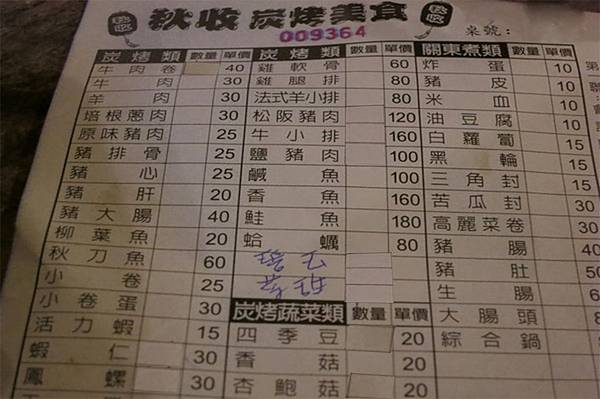 秋收 炭烤美食
秋收
009364
桌號:
炭烤類 數量 單價
牛肉卷 40
牛肉 30
羊肉 30
培根蔥肉 30
原味豬肉 25
豬排骨 25
豬心 25
豬肝 20
豬大腸 40
柳葉魚 20
秋刀魚 60
小卷 25
小卷蛋 30
活力蝦 15
蝦仁 30
鳳螺 30
炭烤類 數量 單價
雞軟骨 60
雞腿排 80
法式羊小排 80
松阪豬肉 120
牛小排 160
鹽豬肉 100
鹹魚 100
香魚 160
鮭魚 180
蛤蠣 80
炭烤蔬菜類 數量 單價
四季豆 20
香菇 20
杏鮑菇 20
關東煮類 數量 單價
炸蛋 10
豬皮 10
米血 10
油豆腐 10
白蘿蔔 15
黑輪 15
三角封 15
苦瓜封 30
高麗菜卷 30
豬腸 40
豬肚 50
生腸
大腸頭
綜合鍋